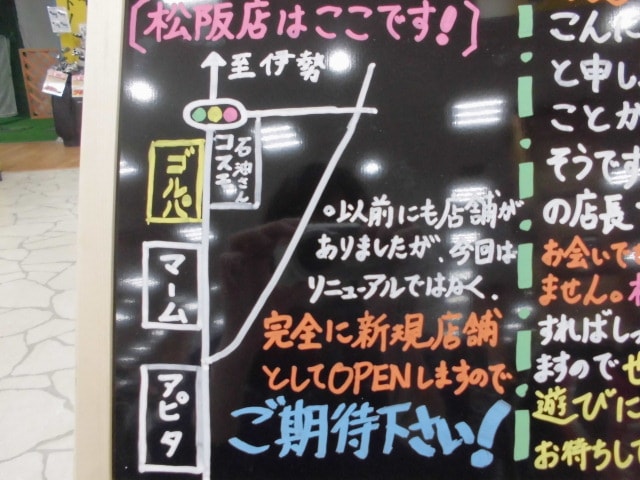 〔松阪店はここです!〕
至伊勢
石油さん
コスモ
ゴルパ
マーム
アピタ
。以前にも店舗が
ありましたが、今回は
リニューアルではなく、
完全に新規店舗
としてOPENしますので
ご期待下さい!
こんに
と申し
ことが
そうです
の店長
お会いでき
ません。
すればし
ますのでぜ
遊びに
お待ちして